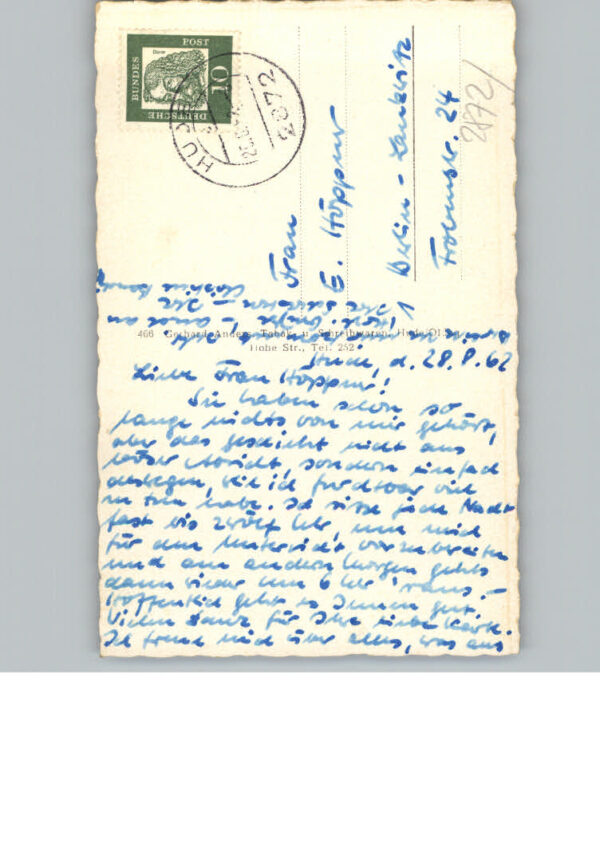 DEUTSCHE
BUNDES
POST
10
Dürer
HUDE
2872
2872/
Frau
E. Höppner
1 Berlin - Lankwitz
Frobenstr. 24
466 Gerhard Anders, Tabak- u. Schreibwaren, Hude/Ol.
Hohe Str., Tel. 252
Hude, d. 28.8.62
Liebe Frau Höppner!
Sie haben schon so
lange nichts von mir gehört,
aber das geschieht nicht aus
böser Absicht, sondern einfach
deswegen, weil ich furchtbar viel
zu tun habe. Ich sitze jede Nacht
fast bis zwölf Uhr, um mich
für den Unterricht vorzubereiten
und am andern Morgen gehts
dann wieder um 6 Uhr raus. -
Hoffentlich geht es Ihnen gut.
Vielen Dank für Ihre liebe Karte.
Ich freue mich über alles, was aus